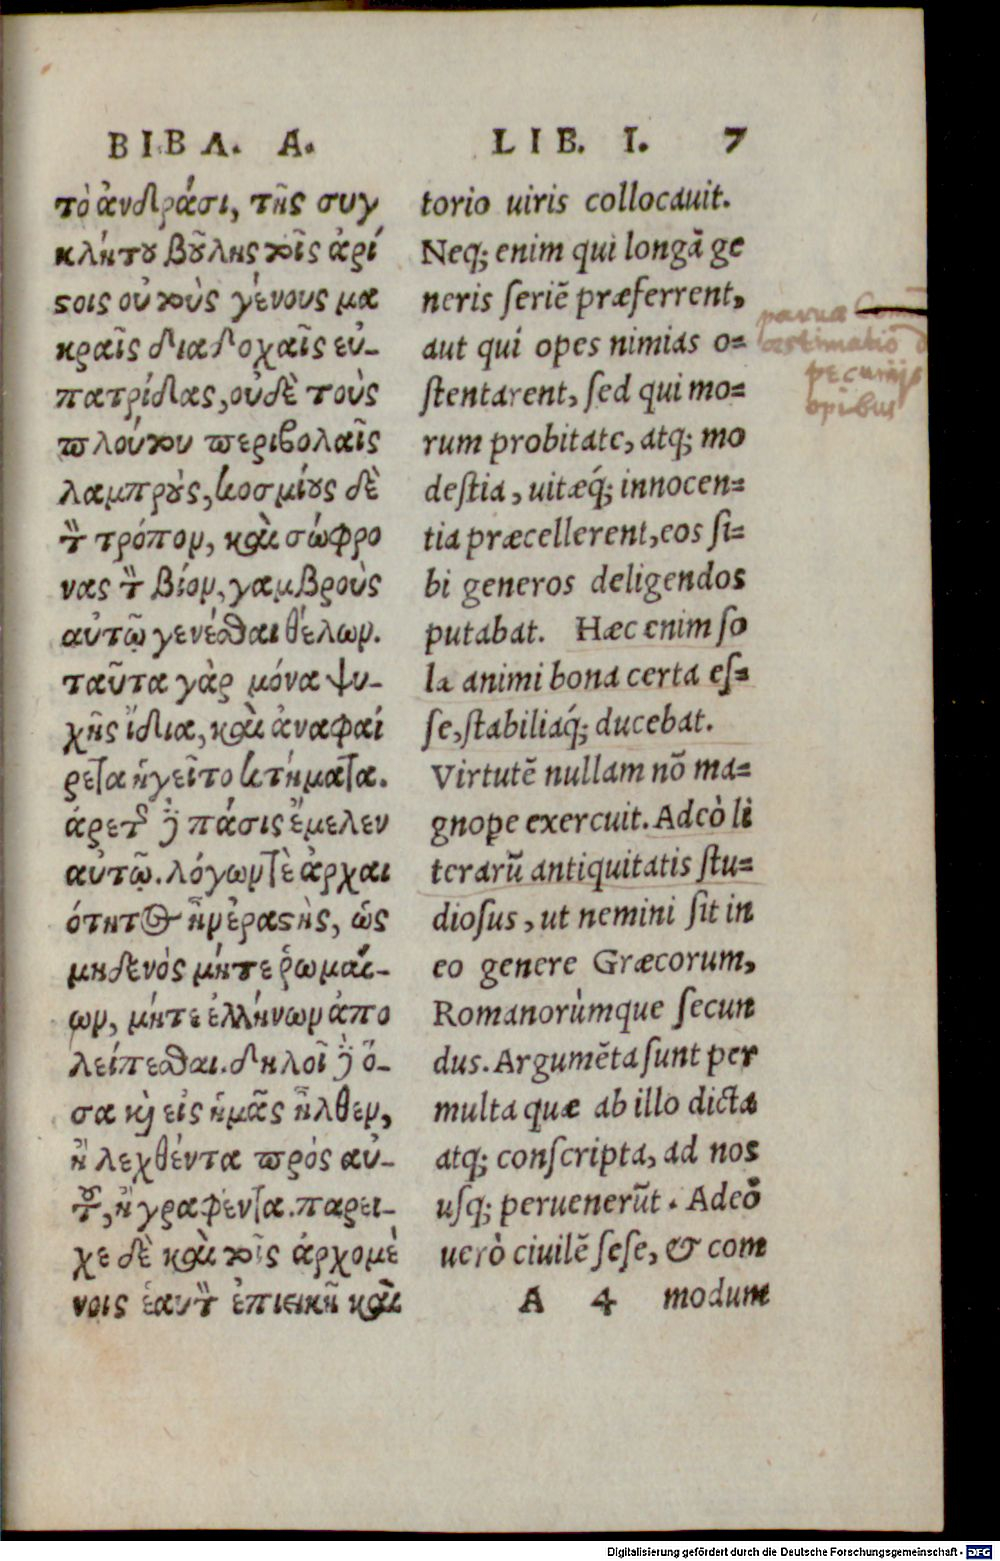 ΒΙΒΛ. Α.
τὸ ἀνδράσι, τῆς συγ
κλήτου βȣ͂λης τοῖς ἀρί
ϛοις οὐ τοὺς γένους μα
κραῖς διαδοχαῖς εὐ-
πατρίδας, οὐδὲ τοὺς
πλούτου περιβολαῖς
λαμπρȣ́ς, κοσμίȣς δὲ
τ̀ τρόπον, καὶ σώφρο
νας τ̀ βίον, γαμβροὺς
αὐτῷ γενέσθαι θέλων.
ταῦτα γὰρ μόνα ψυ-
χῆς ἴδια, καὶ ἀναφαί
ρετα ἡγεῖτο κτήματα.
ἀρετῆς ἢ πάσις ἔμελεν
αὐτῷ. λόγων τὲ ἀρχαι
ότητος ἦν ἐραϛὴς, ὡς
μηδενὸς μήτε ῥωμαί-
ων, μήτε ἑλλήνων ἀπο
λείπεσθαι. δηλοῖ ἢ ὅ-
σα κὶ εἰς ἡμᾶς ἦλθεν,
ἢ λεχθέντα πρὸς αὐ-
τȣ͂, ἢ γραφέντα. παρεῖ-
χε δὲ καὶ τοῖς ἀρχομέ
νοις ἑαυτ̀ ἐπιεικῆ καὶ
LIB. I. 7
torio uiris collocauit.
Neq; enim qui longā ge
neris ſeriē præferrent,
aut qui opes nimias o=
ſtentarent, ſed qui mo=
rum probitate, atq; mo
deſtia, uitæq́; innocen=
tia præcellerent, eos ſi=
bi generos deligendos
putabat. Hæc enim ſo
la animi bona certa eſ=
ſe, ſtabiliaq́; ducebat.
Virtutē nullam nō ma=
gnope exercuit. Adeò li
terarū antiquitatis ſtu=
dioſus, ut nemini ſit in
eo genere Græcorum,
Romanorùmque ſecun
dus. Argumēta ſunt per
multa quæ ab illo dicta
atq; conſcripta, ad nos
uſq; peruenerūt. Adeò
uerò ciuilē ſeſe, & com
A 4 modum
parua
æstimatio d
pecunijs
opibus
Digitalisierung gefördert durch die Deutsche Forschungsgemeinschaft - DFG